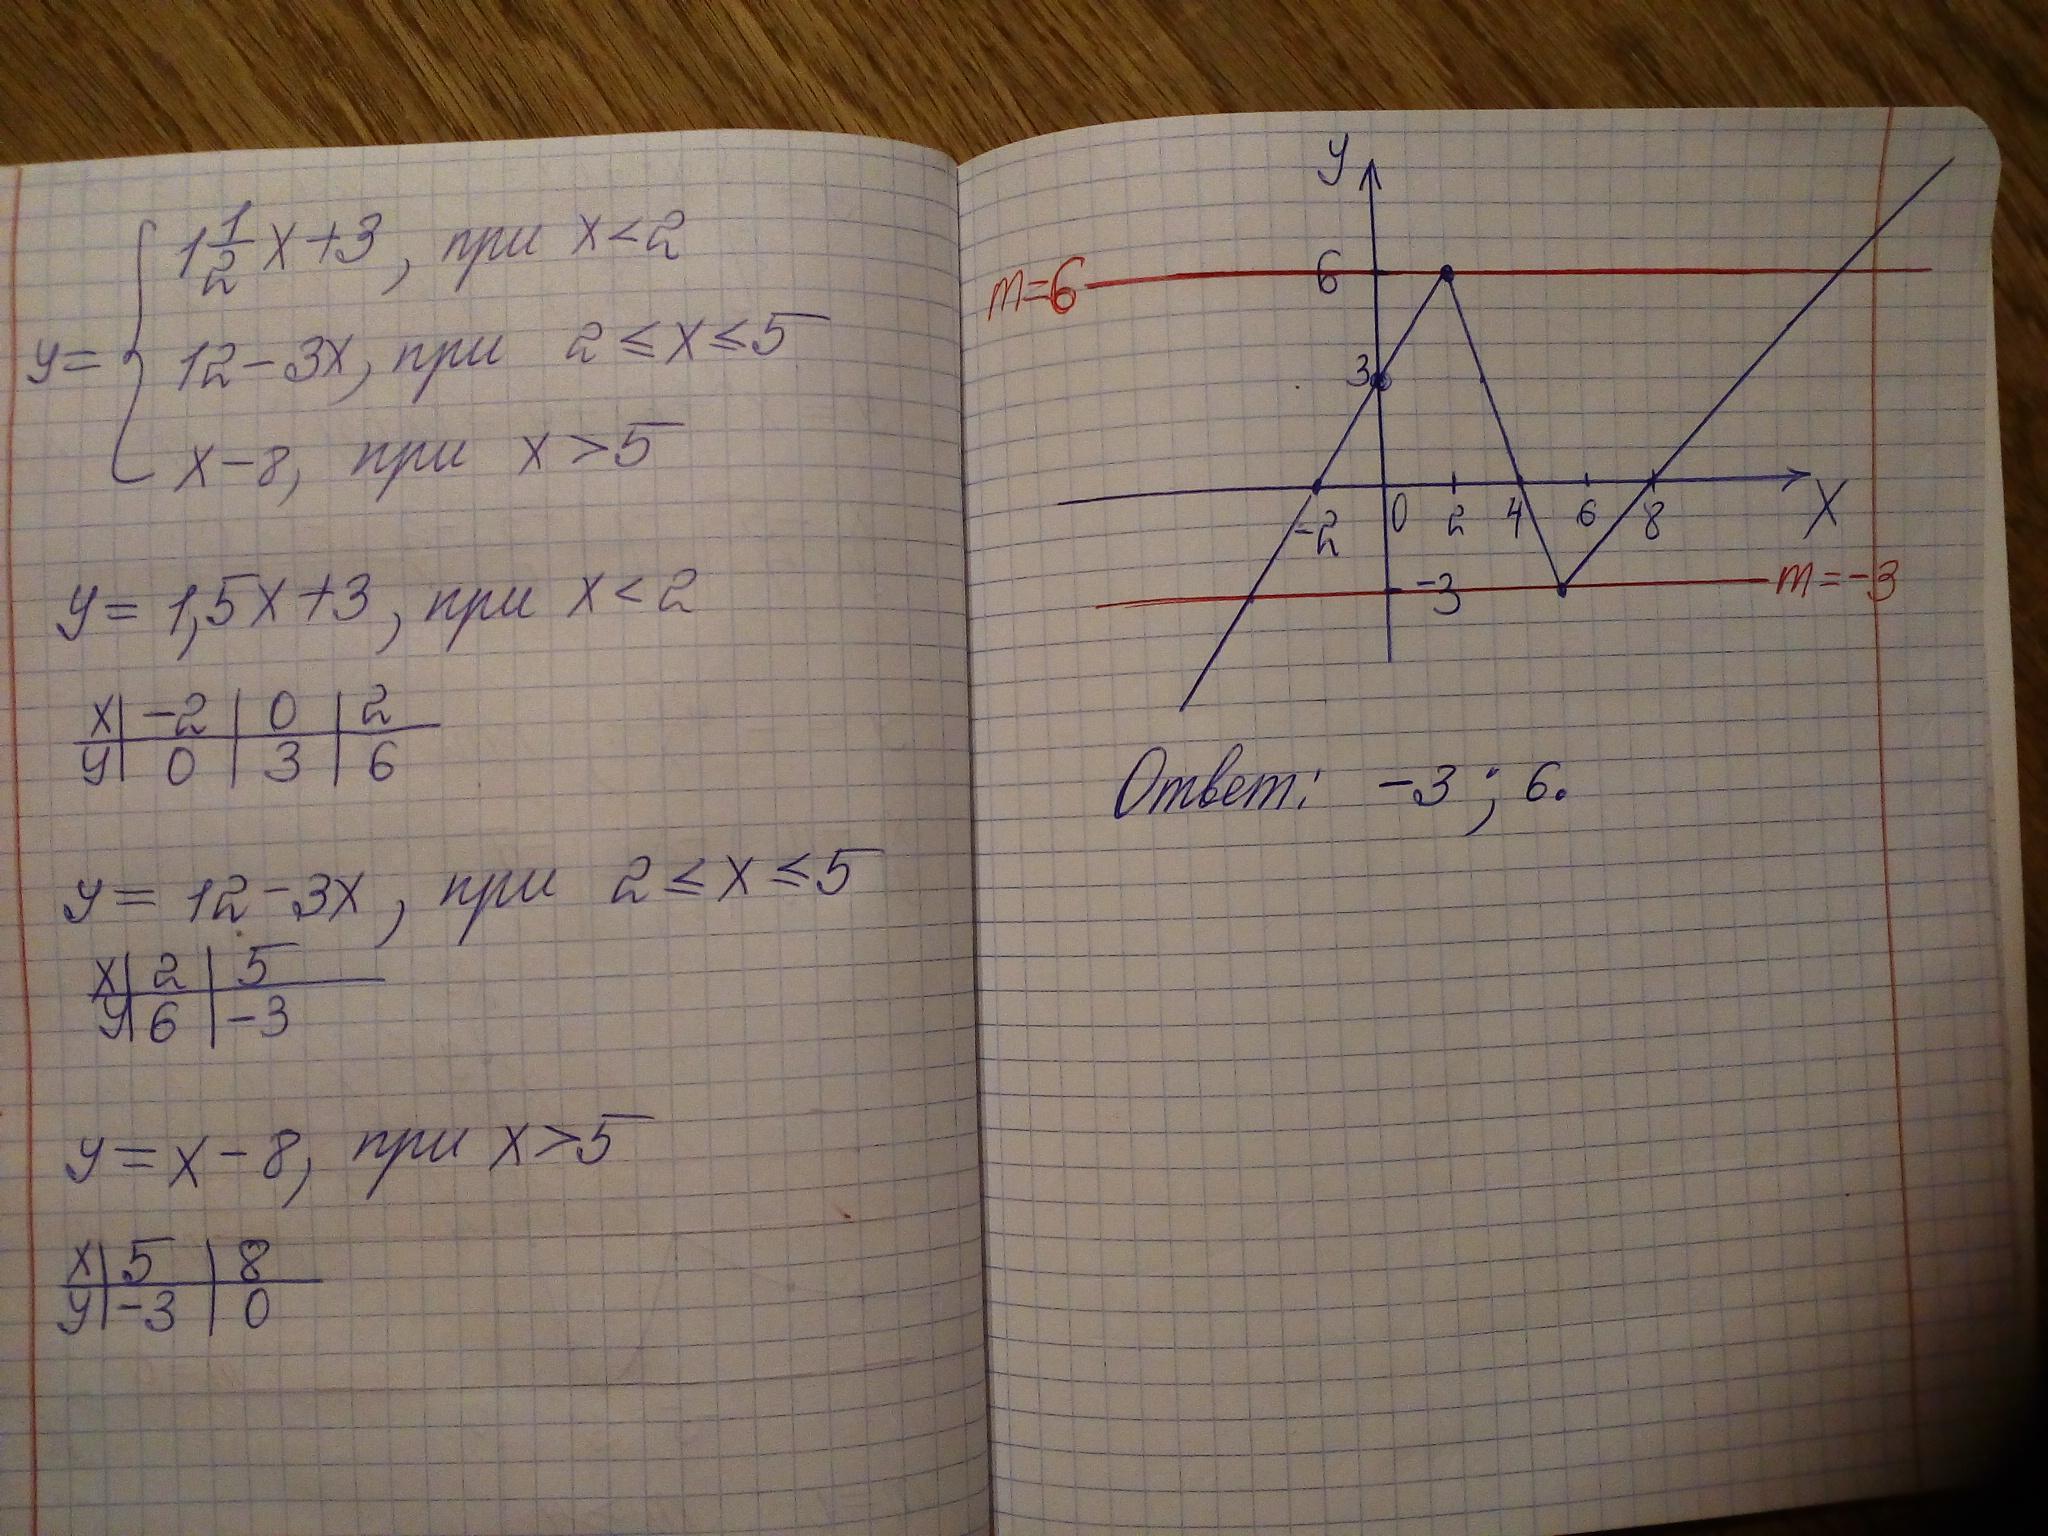 y = { 1 1/2 x + 3, при x < 2
12 - 3x, при 2 ≤ x ≤ 5
x - 8, при x > 5
y = 1,5x + 3, при x < 2
x | -2 | 0 | 2
y | 0 | 3 | 6
y = 12 - 3x, при 2 ≤ x ≤ 5
x | 2 | 5
y | 6 | -3
y = x - 8, при x > 5
x | 5 | 8
y | -3 | 0
y
m=6 6
3
-2 0 2 4 6 8 X
-3 m=-3
Ответ: -3 ; 6.